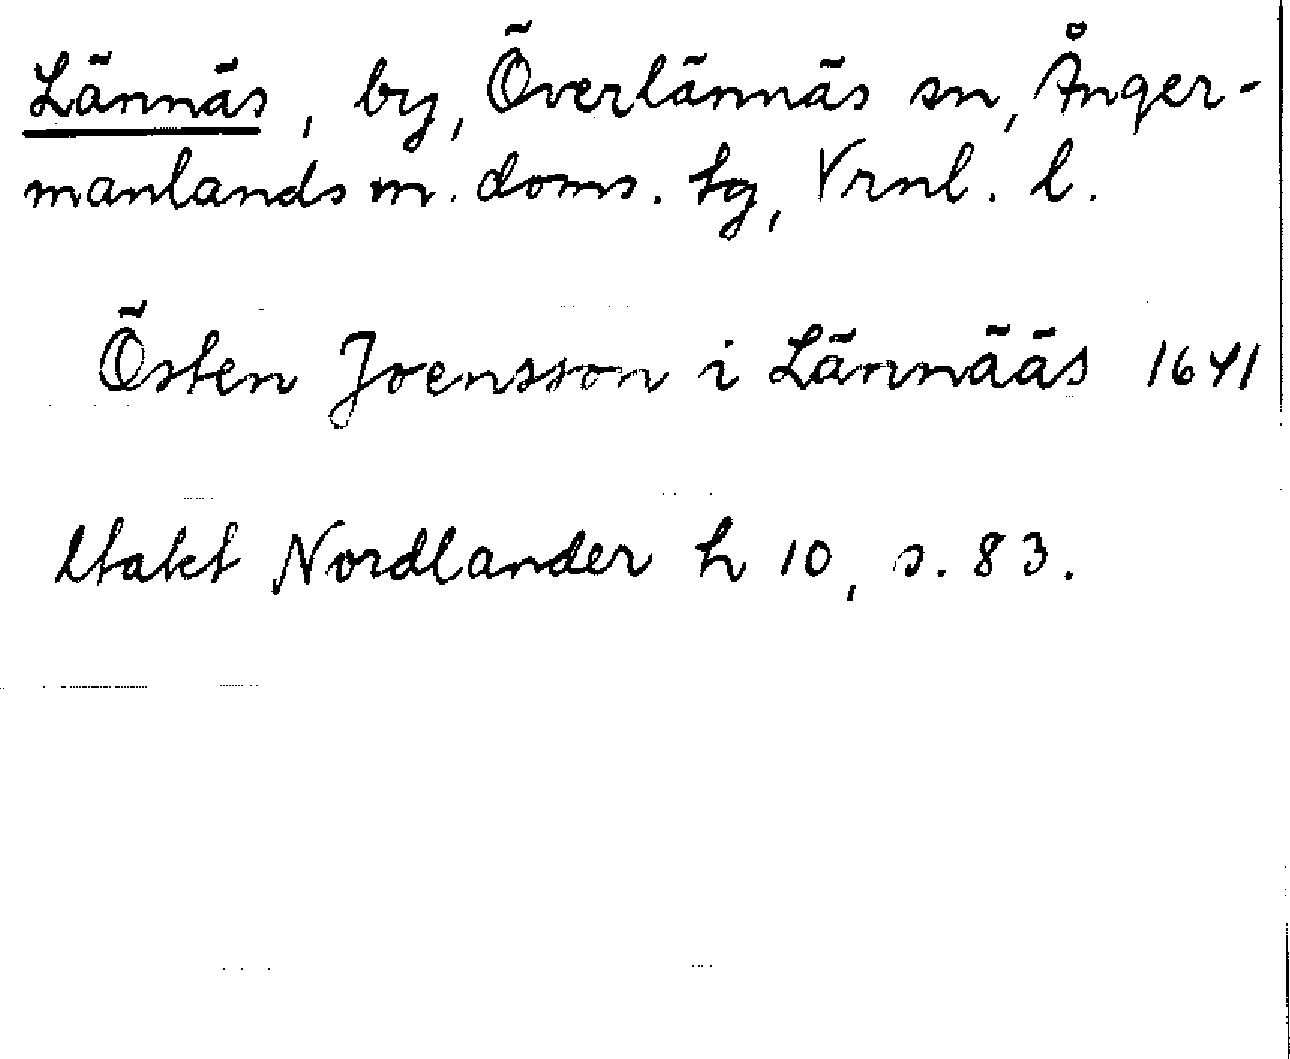 Lännäs, by, Överlännäs sn, Ånger-
manlands m. doms. tg, Vrnl. l.
Östen Joensson i Lännääs 1641
Utakt Nordlander h 10, s. 83.